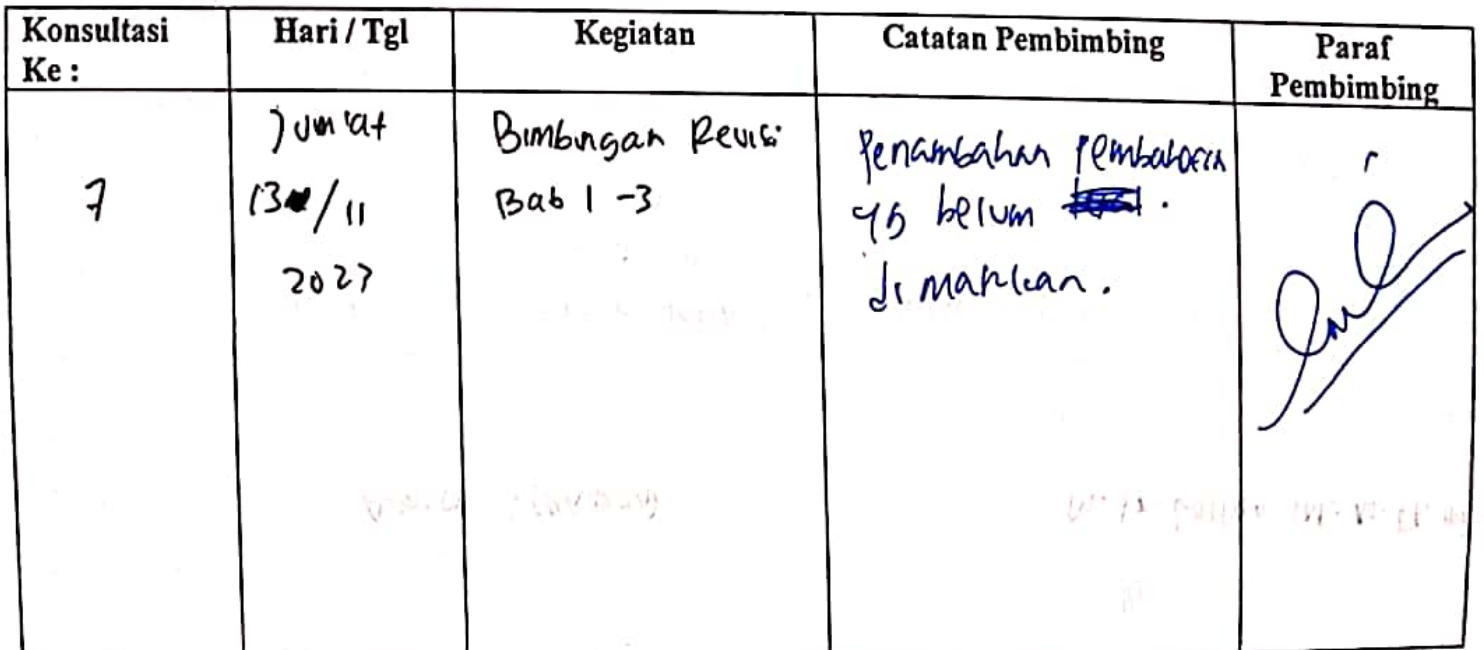 Konsultasi Ke :
Hari / Tgl
Kegiatan
Catatan Pembimbing
Paraf Pembimbing
7
Jum'at
13 / 11
2023
Bimbingan Revisi
Bab 1 - 3
Penambahan
yg belum .